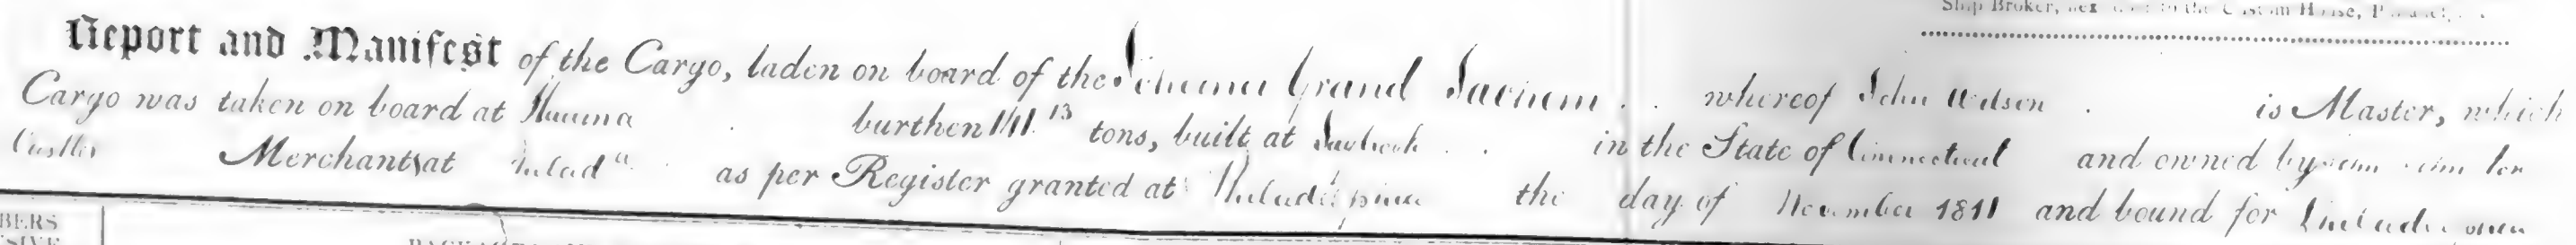 Ship Broker, next door to the Custom House,
Report and Manifest of the Cargo, laden on board of the Schooner Grand Sachem whereof John Wilson is Master, which
Cargo was taken on board at Havana burthen 141 13 tons, built at Saybrook in the State of Connecticut and owned by
Merchants at Philad a as per Register granted at Philadelphia the day of November 1811 and bound for Philadelphia
BERS
SIVE